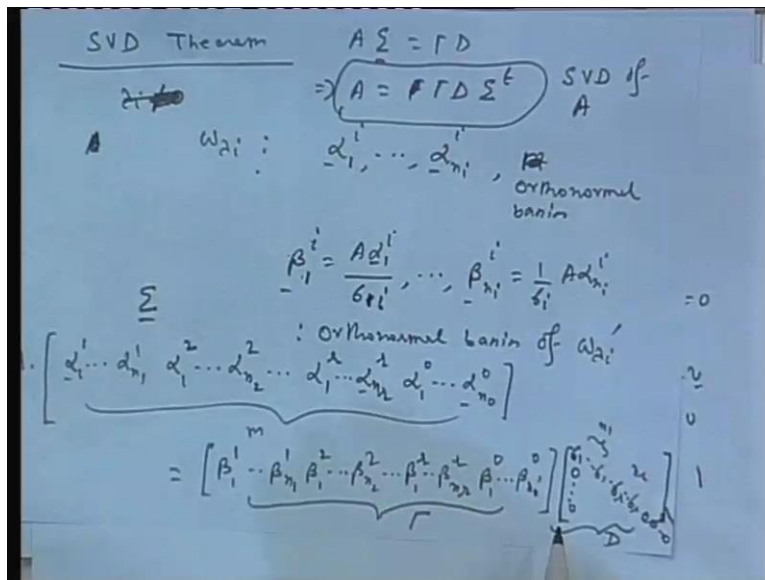 SVD Theorem A Σ = Γ D
⇒ A = Γ D Σᵗ SVD of
A
W_λi : α₁ⁱ, ..., α_nᵢⁱ,
orthonormal
basis
β₁ⁱ = Aα₁ⁱ / σᵢ, ..., β_nᵢⁱ = 1/σᵢ Aα_nᵢⁱ
= 0
Σ : orthonormal basis of W_λi′
[α₁¹ ... α_n₁¹ α₁² ... α_n₂² ... α₁ʳ ... α_nᵣʳ α₁⁰ ... α_n₀⁰]
= [β₁¹ ... β_n₁¹ β₁² ... β_n₂² ... β₁ʳ ... β_nᵣʳ β₁⁰ ... β_n₀⁰]
Γ D